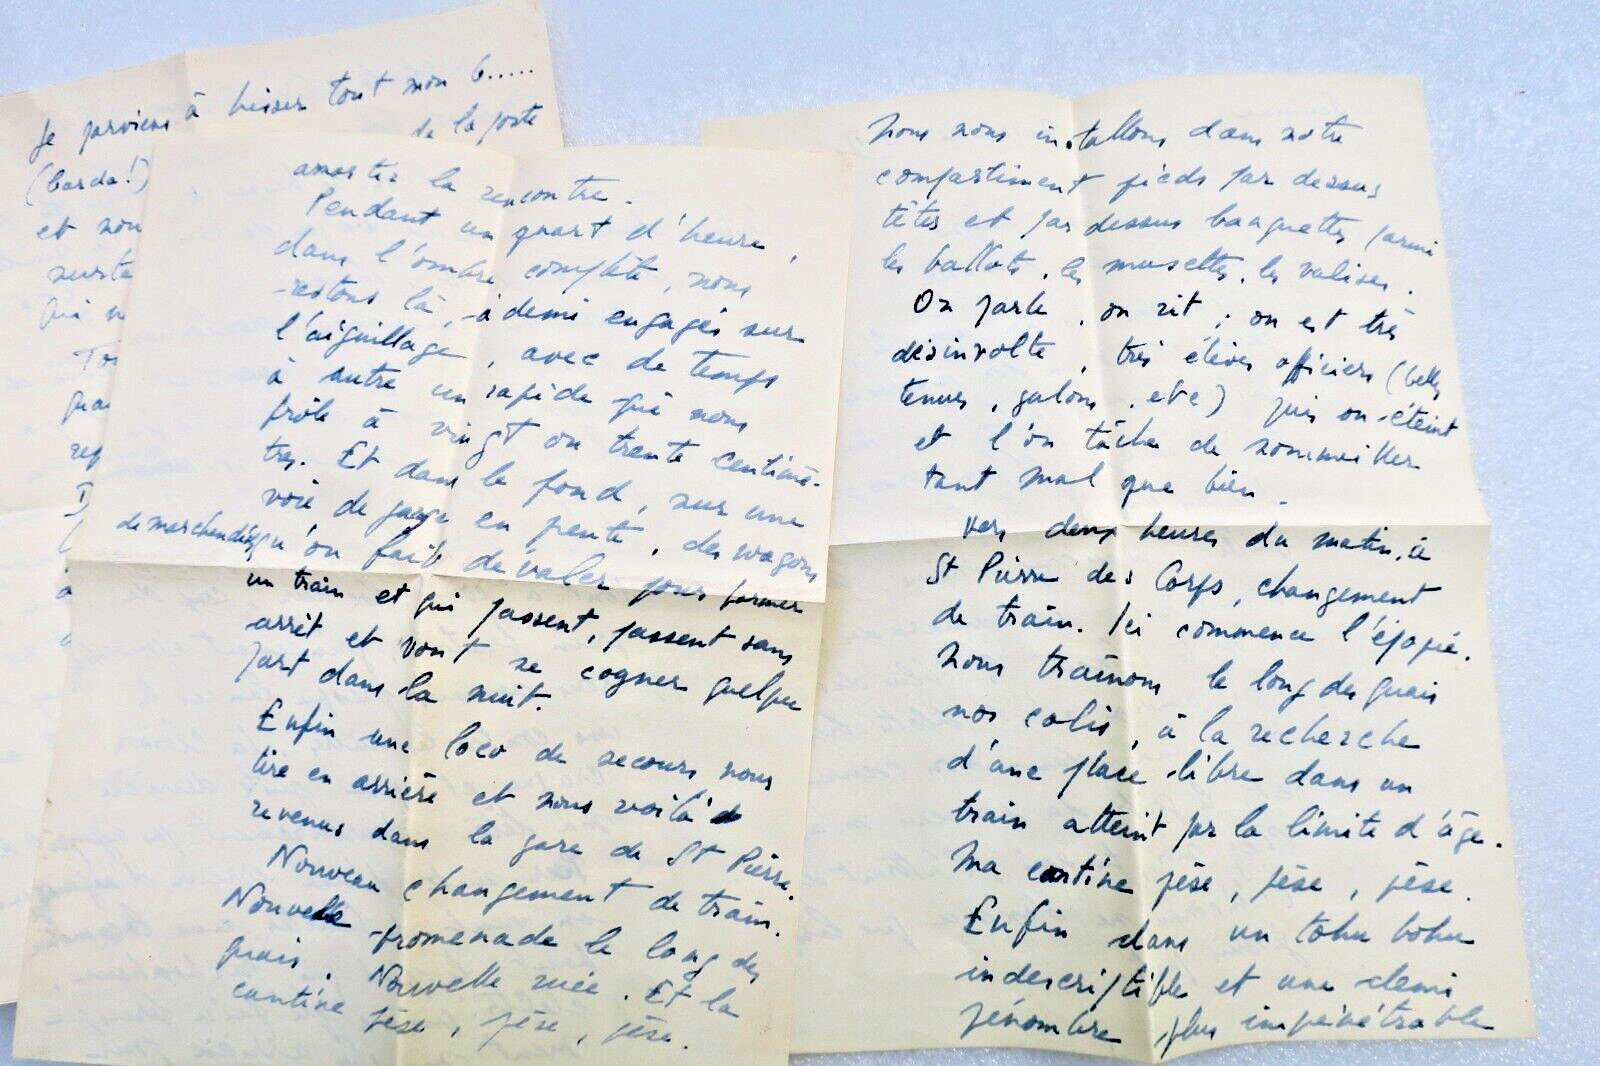 Nous nous installons dans notre
compartiment pieds par dessus
têtes et par dessus banquettes parmi
les ballots, les musettes, les valises.
On parle, on rit ; on est très
désinvolte, très élèves officiers (belles
tenues, galons, etc) puis on éteint
et l'on tâche de sommeiller
tant mal que bien.
Vers deux heures du matin, à
St Pierre des Corps, changement
de train. Ici commence l'épopée.
Nous traînons le long des quais
nos colis, à la recherche
d'une place libre dans un
train atteint par la limite d'âge.
Ma cantine pèse, pèse, pèse.
Enfin dans un tohu bohu
indescriptible et une demi
pénombre plus impénétrable
Je parviens à hisser tout mon b.....
(barda!)
de la porte
et nou
surte
Qui n
To
qua
rep
amortir la rencontre.
Pendant un quart d'heure,
dans l'ombre complète, nous
restons là, à demi engagés sur
l'aiguillage, avec de temps
à autre un rapide qui nous
frôle à vingt ou trente centimè-
tres. Et dans le fond, sur une
voie de garage en pente, des wagons
de marchandises qu'on fait dévaler pour former
un train et qui passent, passent sans
arrêt et vont se cogner quelque
part dans la nuit.
Enfin une loco de secours nous
tire en arrière et nous voilà
revenus dans la gare de St Pierre.
Nouveau changement de train.
Nouvelle promenade le long des
quais. Nouvelle ruée. Et la
cantine pèse, pèse, pèse.